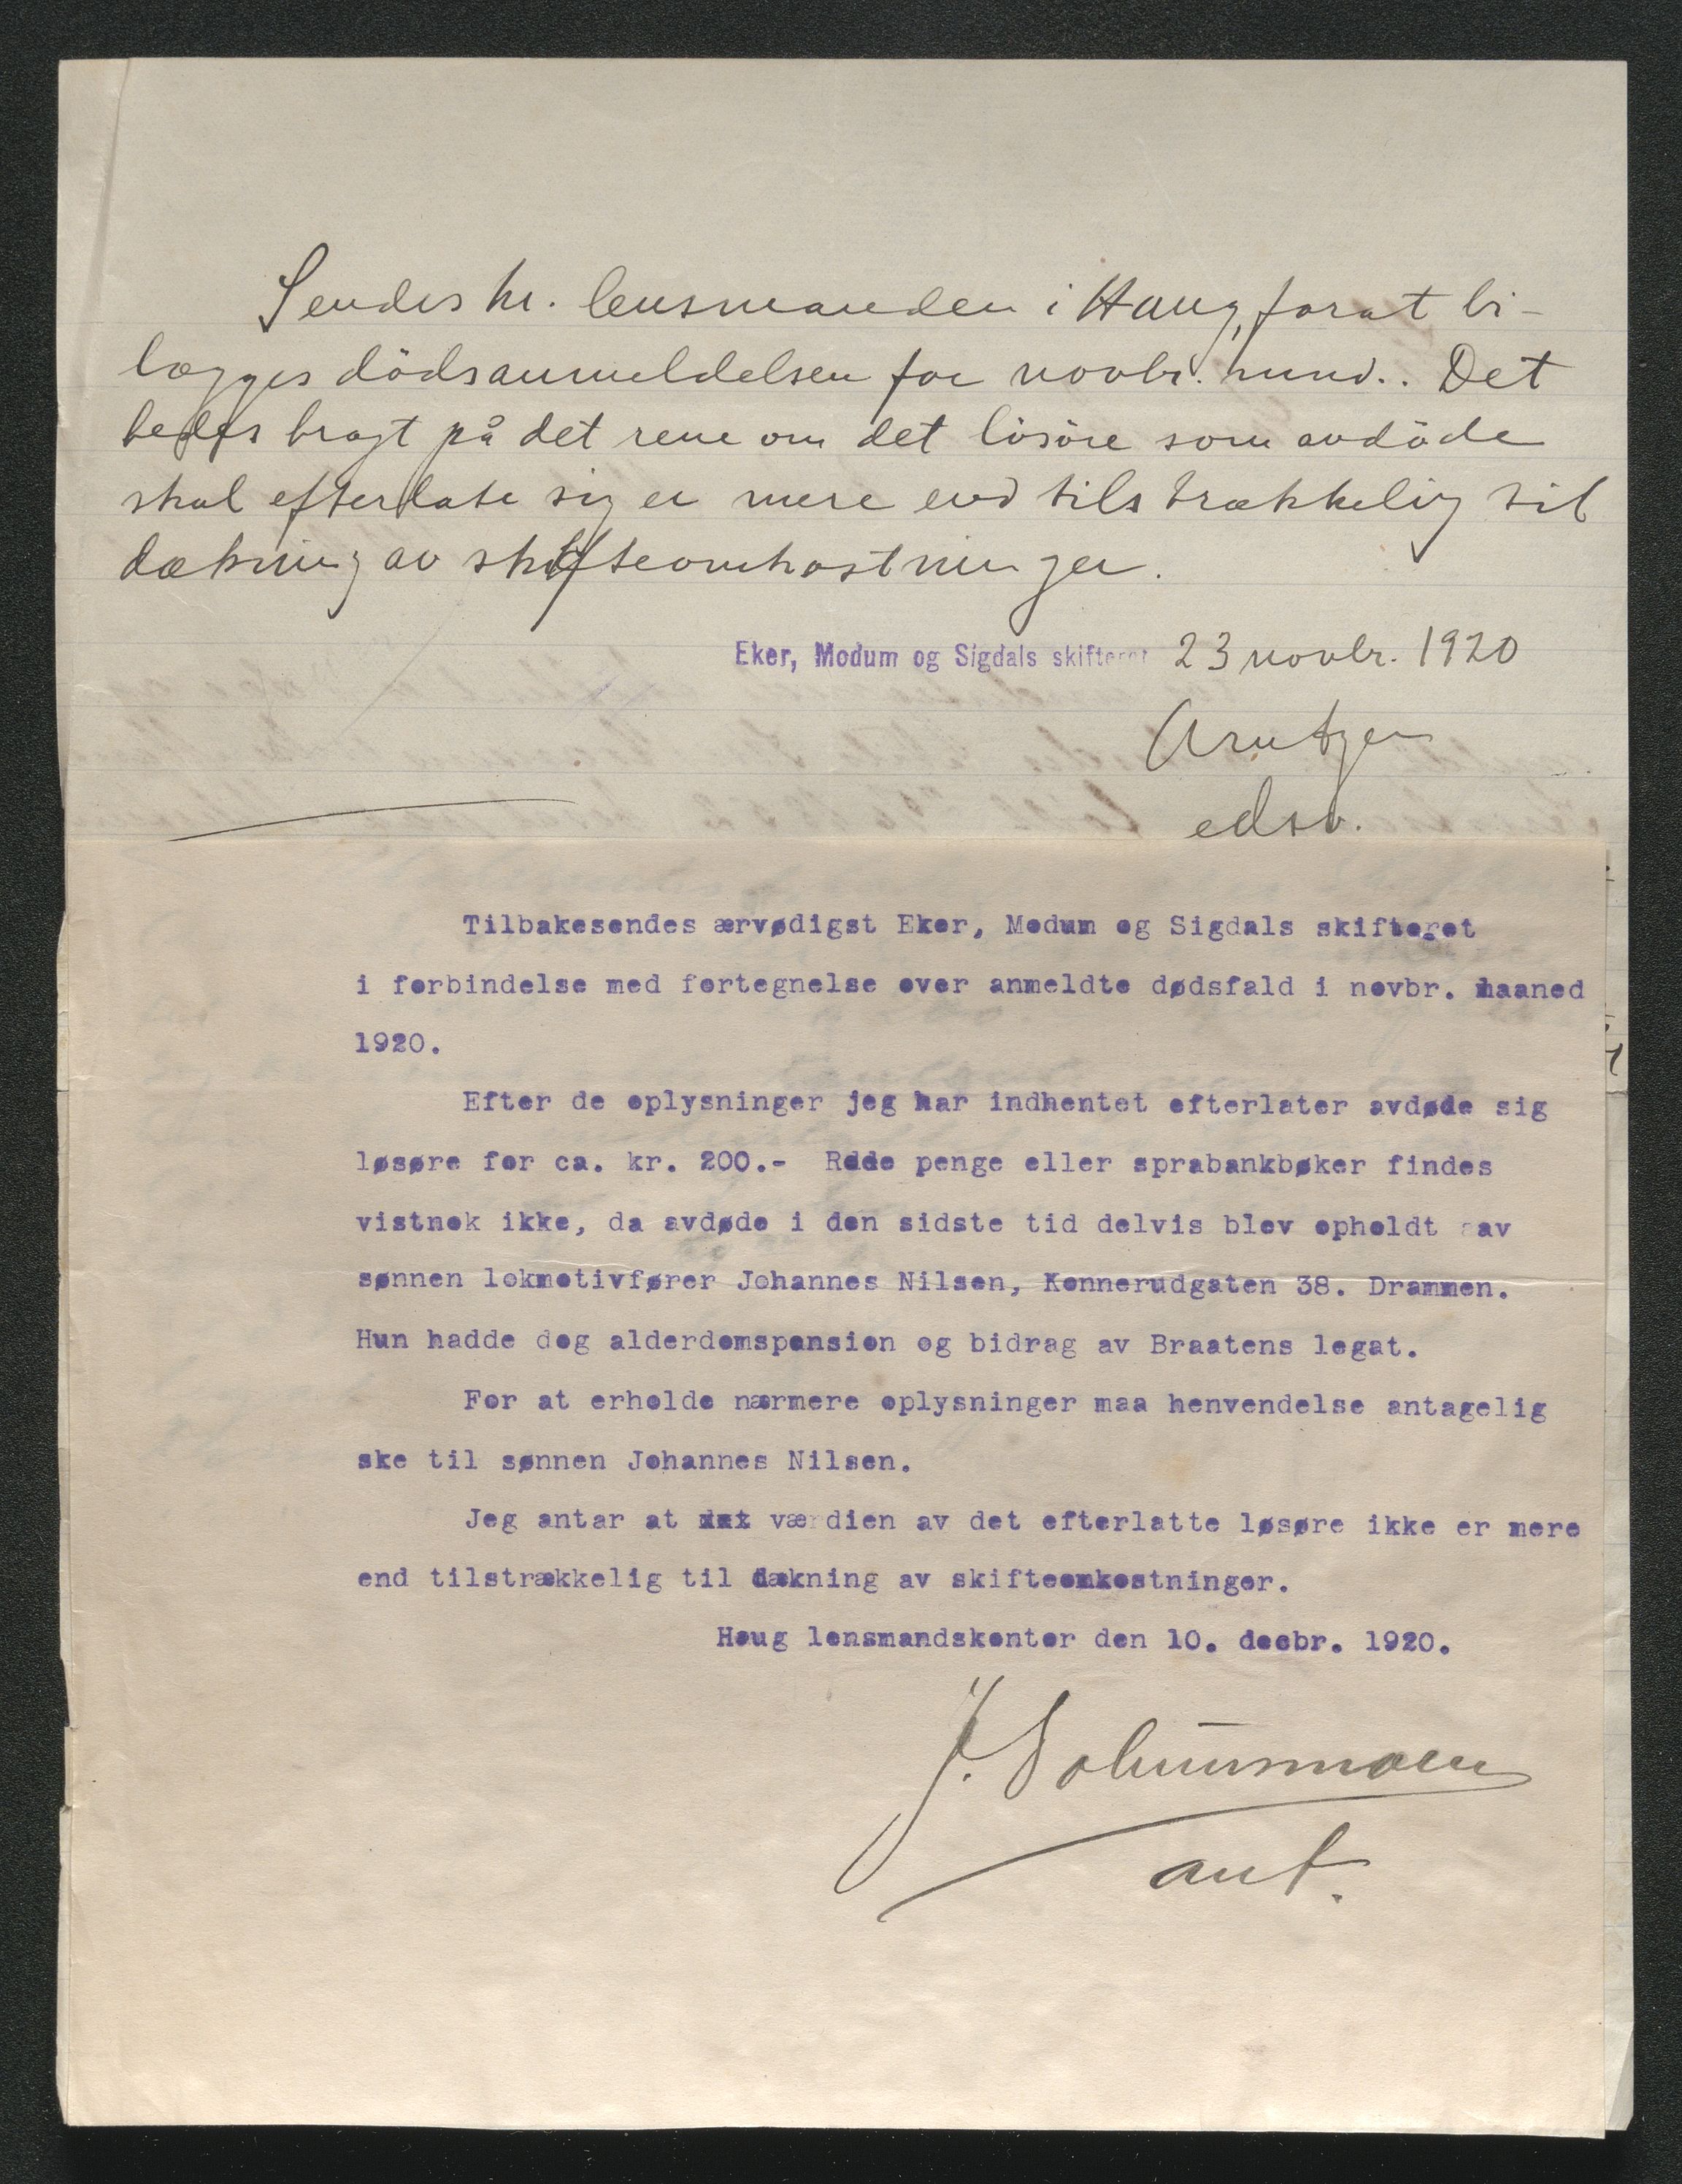 Sendes hr. lensmanden i Haug, forat bi-
lægges dödsanmeldelsen for novbr. mnd.. Det
bedes bragt på det rene om det lösöre som avdöde
skal efterlate sig er mere end tilstrækkelig til
dækning av skifteomkostninger.
Eker, Modum og Sigdals skifteret 23 novbr. 1920
Arntzen
edsv.
Tilbakesendes ærvødigst Eker, Modum og Sigdals skifteret
i forbindelse med fortegnelse over anmeldte dødsfald i novbr. maaned
1920.
Efter de oplysninger jeg har indhentet efterlater avdøde sig
løsøre for ca. kr. 200.- Rede penge eller sprabankbøker findes
vistnok ikke, da avdøde i den sidste tid delvis blev opholdt av
sønnen lokmotivfører Johannes Nilsen, Konnerudgaten 38. Drammen.
Hun hadde dog alderdomspension og bidrag av Braatens legat.
For at erholde nærmere oplysninger maa henvendelse antagelig
ske til sønnen Johannes Nilsen.
Jeg antar at værdien av det efterlatte løsøre ikke er mere
end tilstrækkelig til dækning av skifteomkostninger.
Haug lensmandskontor den 10. decbr. 1920.
J.
ant.